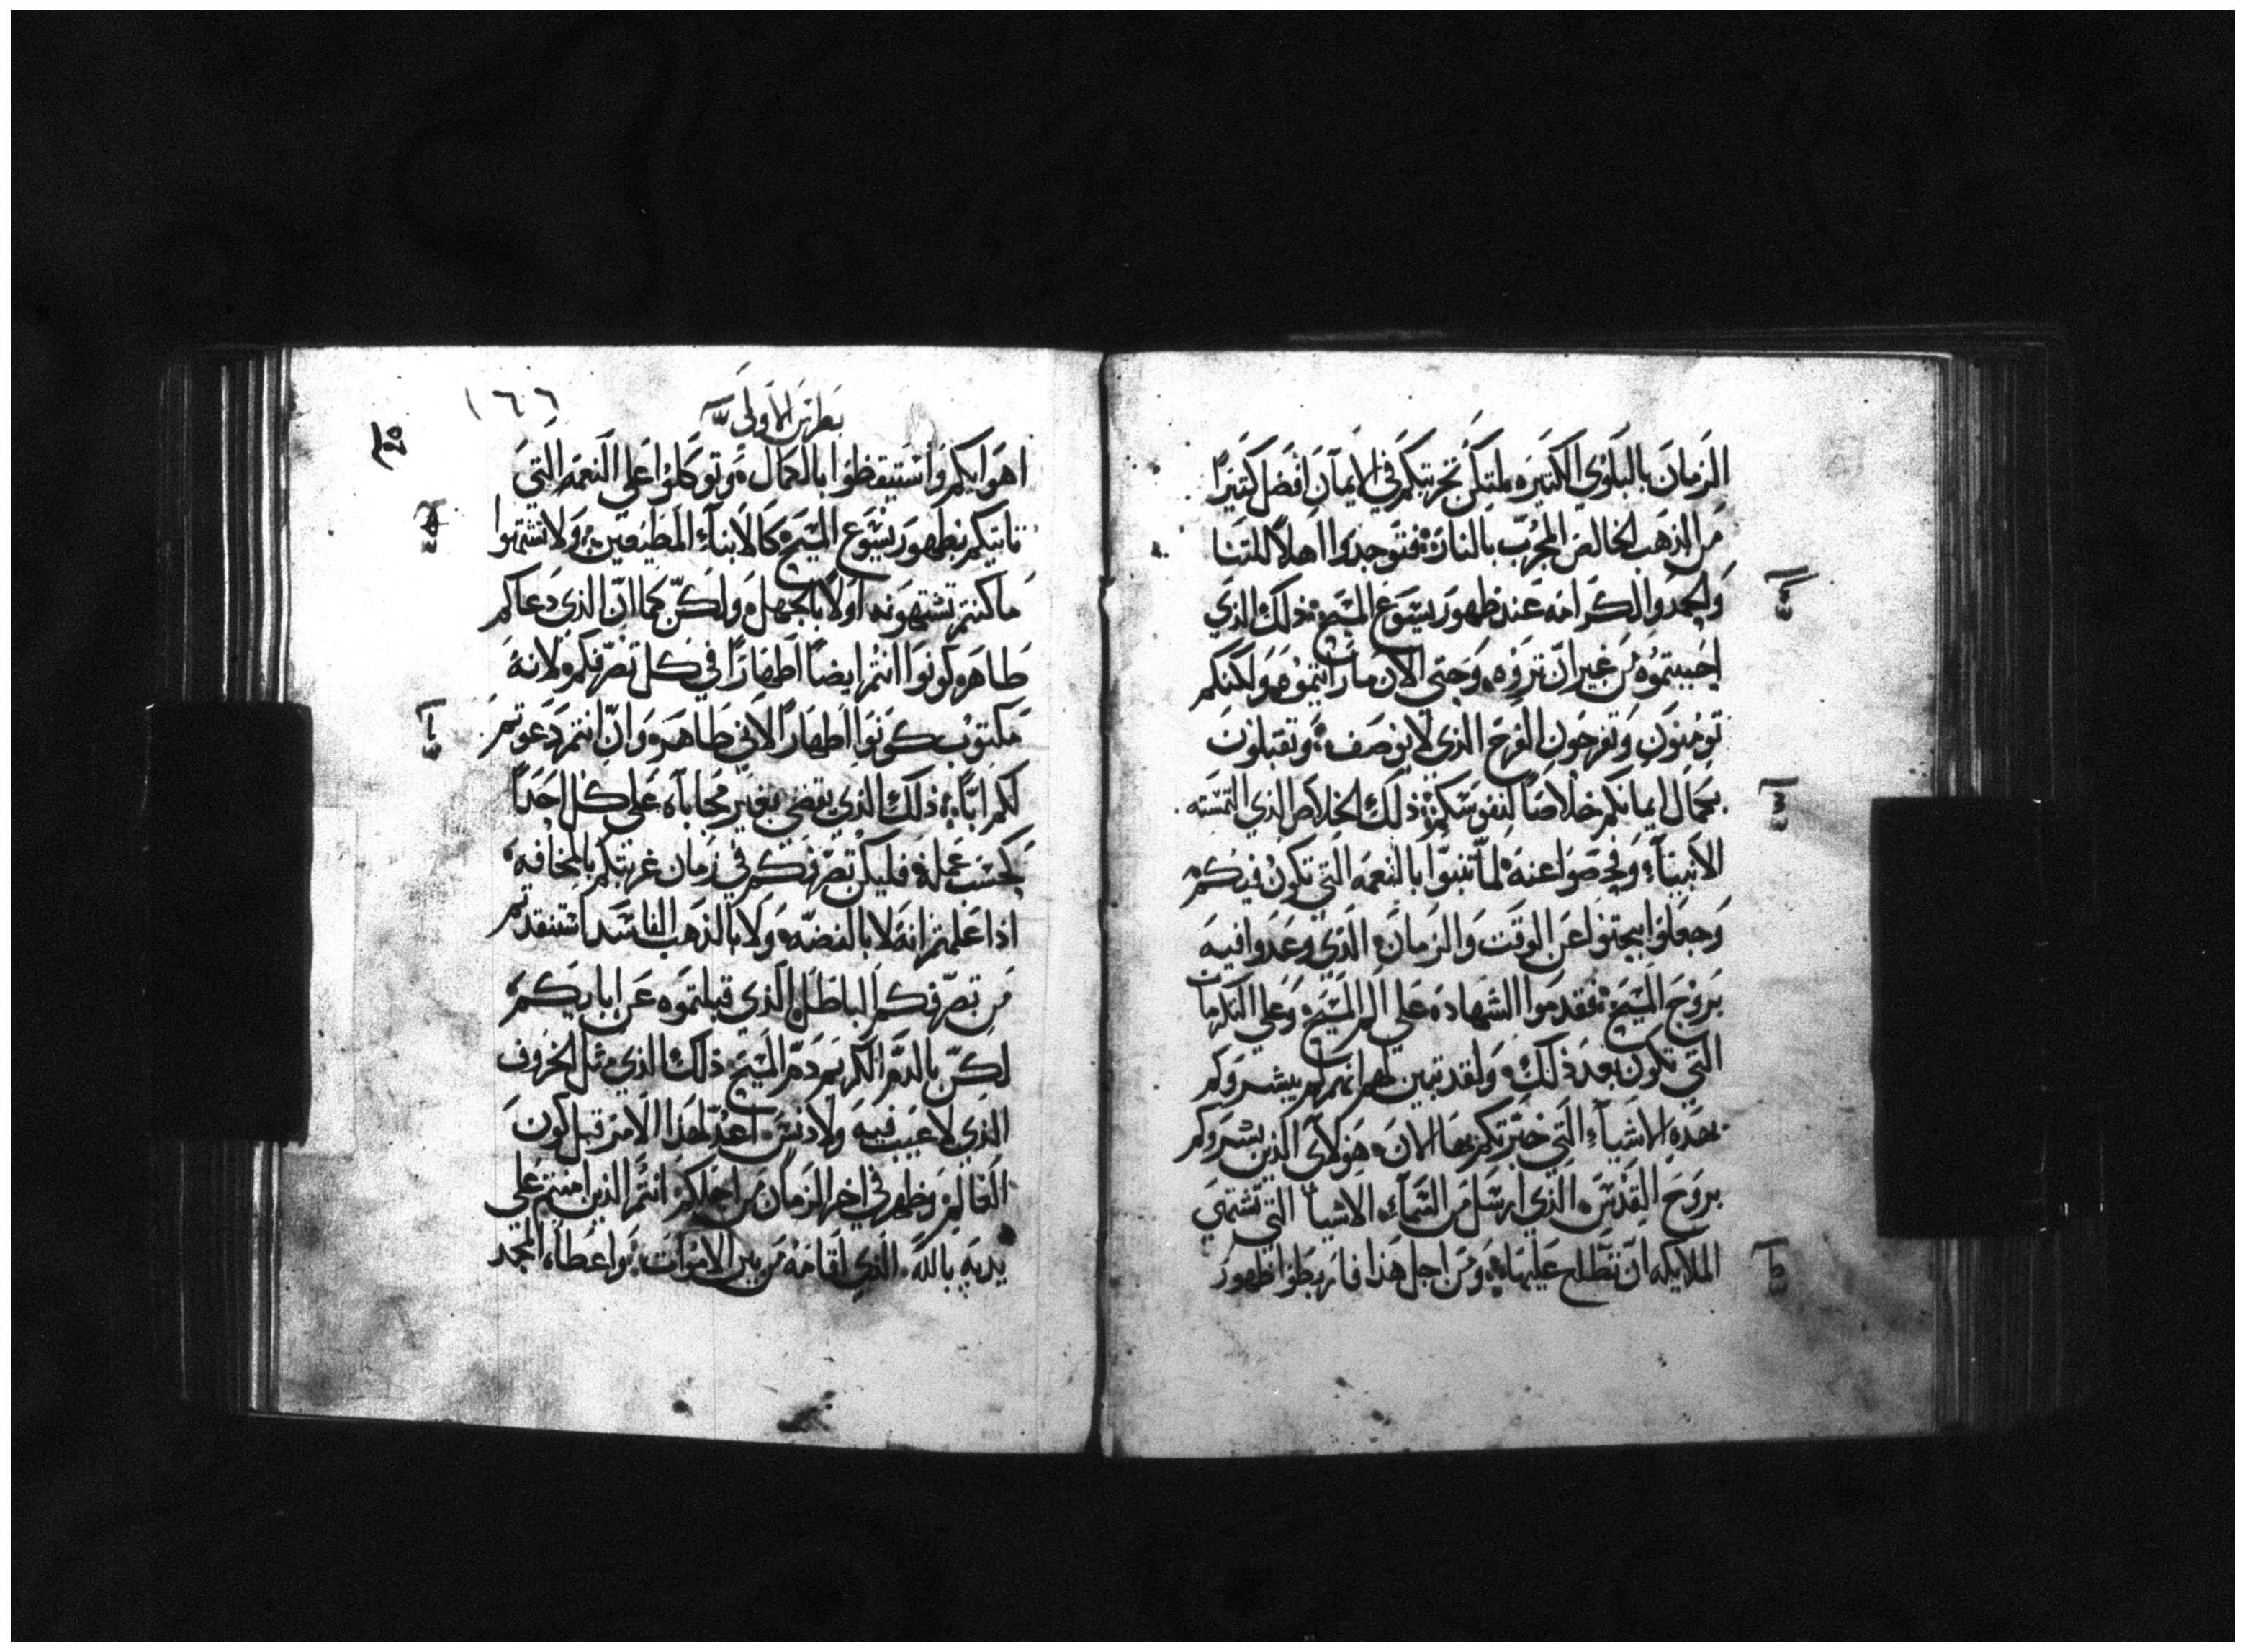 الزمان بالبلاوي الكتيره لتكن تجربتكم في الايمان افضل كتيرًا
من الذهب الخالص المجرب بالنار فتوجدوا اهلاً للتنا
والمجد والكرامه عند ظهور يسوع المسيح ذلك الذي
احببتموه من غير ان تروه وحتي الان ما رايتموه ولكنكم
تومنون وتفرحون الفرح الذي لا يوصف وتقبلون
بكمال ايمانكم خلاصًا لنفوسكم ذلك الخلاص الذي التمسته
الانبياء وفحصوا عنه لما تنبوا بالنعمه التي تكون فيكم
وجعلوا يبحتوا عن الوقت والزمان الذي وعدوا فيه
بروح المسيح فقدموا الشهاده علي الم المسيح وعلي الكرامات
التي تكون بعد ذلك ولقد تبين لهم انهم لم يبشروكم
بهذه الاشياء التي خبرتكم بها الان هولاي الذين بشروكم
بروح القدس الذي ارسل من السماء الاشيا التي تشتهي
الملايكه ان تطلع عليها ومن اجل هذا فاربطوا ظهور
بطرس الاولي
١٦٦
اهوايكم واستيقظوا بالكمال وتوكلوا علي النعمه التي
تاتيكم بظهور يسوع المسيح كالابناء المطيعين ولا تشتهوا
ما كنتم تشتهونه اولاً بالجهل ولكن كما ان الذي دعاكم
طاهر كونوا انتم ايضًا اطهارًا في كل تصرفكم لانه
مكتوب كونوا اطهارًا لاني طاهر وان انتم دعوتم
لكم ابًا ذلك الذي يقضي بغير محاباه علي كل احدًا
كحسب عمله فليكن تصرفكم في زمان غربتكم بالمخافه
اذا علمتم انه لا بالفضه ولا بالذهب الفاسد استنقدتم
من تصرفكم الباطل الذي قبلتموه عن ابايكم
لكن بالدم الكريم دم المسيح ذلك الذي مثل الخروف
الذي لا عيب فيه ولا دنس اعد لهذا الامر قبل كون
العالم وظهر في اخر الزمان من اجلكم انتم الذين امنتم علي
يديه بالله الذي اقامه من بين الاموات واعطاه المجد